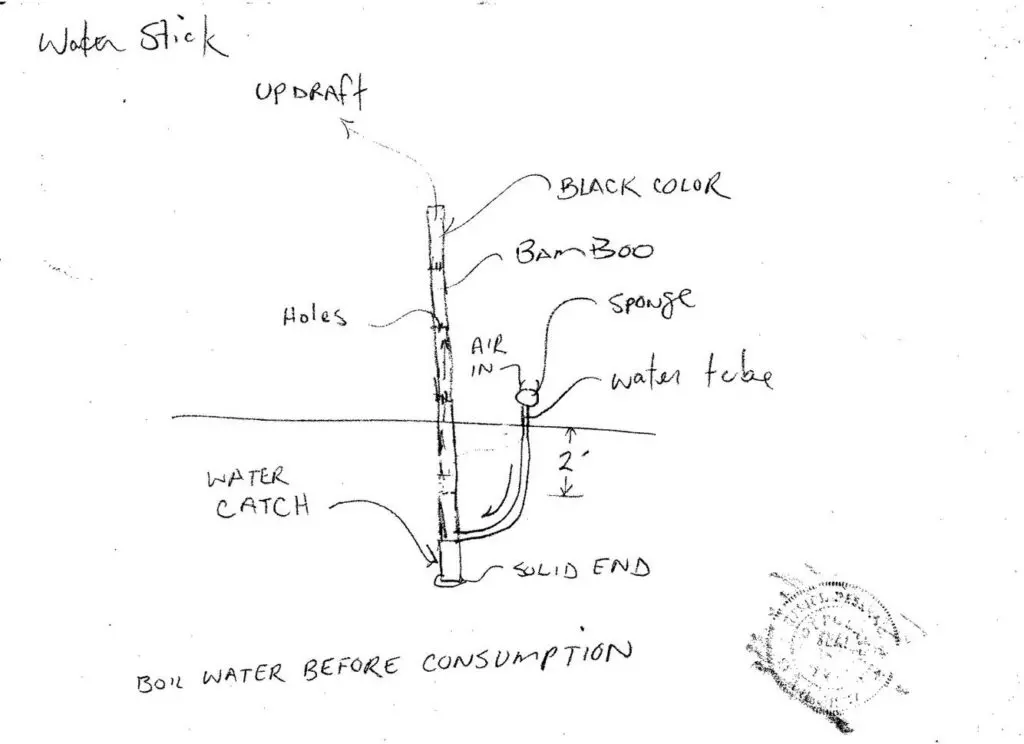 Water Stick
UPDRAFT
BLACK COLOR
BAMBOO
Holes
Sponge
AIR
IN
water tube
2'
WATER
CATCH
SOLID END
BOIL WATER BEFORE CONSUMPTION